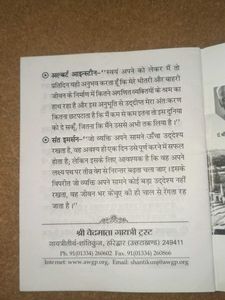 अल्बर्ट आइन्स्टीन-"स्वयं अपने को लेकर मैं तो
प्रतिदिन यही अनुभव करता हूँ कि मेरे भीतरी और बाहरी
जीवन के निर्माण में कितने अगणित व्यक्तियों के श्रम का
हाथ रहा है और इस अनुभूति से उद्दीप्त मेरा अंतःकरण
कितना छटपटाता है कि मैं कम से कम इतना तो इस दुनिया
को दे सकूँ, जितना कि मैंने उससे अभी तक लिया है।"
संत इमर्सन-"जो व्यक्ति अपने सामने ऊँचा उद्देश्य
रखता है, वह अवश्य ही एक दिन उसे पूर्ण करने में सफल
होता है; लेकिन इसके लिए आवश्यक है कि वह अपने
लक्ष्य पथ पर तीव्र वेग से निरन्तर बढ़ता चला जाए। इसके
विपरीत जो व्यक्ति अपने सामने कोई बड़ा उद्देश्य नहीं
रखता, वह जीवन भर केंचुए की ही चाल से रेंगता रह
जाता है।"
श्री वेदमाता गायत्री ट्रस्ट
गायत्रीतीर्थ-शांतिकुंज, हरिद्वार (उत्तराखण्ड) 249411
Ph. 91(01334) 260602 Fax. 91(01334) 260866
Internet: www.awgp.org, Email: shantikunj@awgp.org